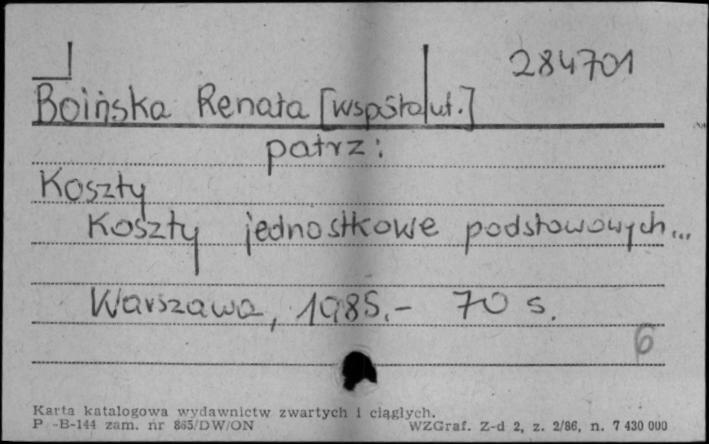 284701
Boińska Renata [współaut.]
patrz:
Koszty
Koszty jednostkowe podstawowych...
Warszawa, 1985.- 70 s.
6
Karta katalogowa wydawnictw zwartych i ciągłych.
P -B-144 zam. nr 865/DW/ON WZGraf. Z-d 2, z. 2/86, n. 7 430 000